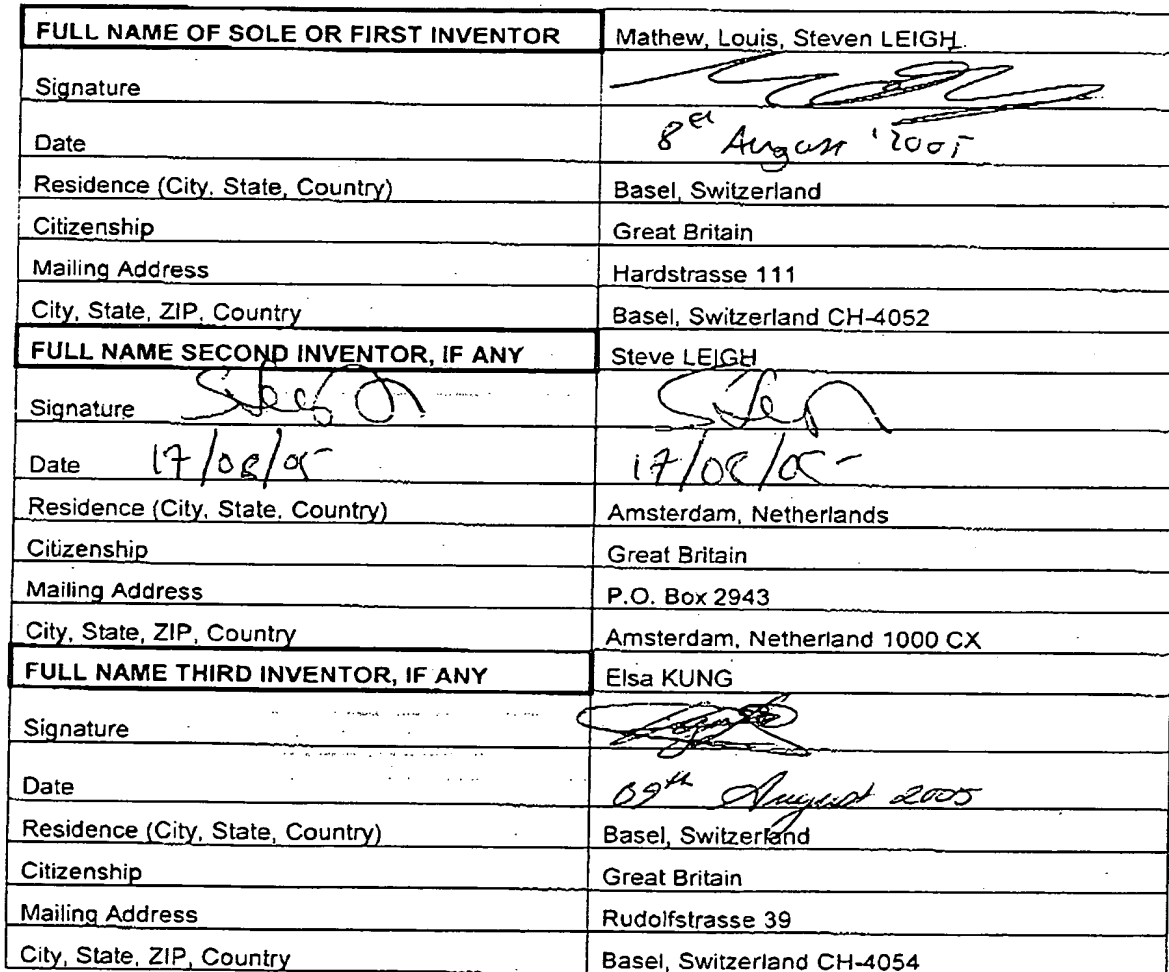 FULL NAME OF SOLE OR FIRST INVENTOR Mathew, Louis, Steven LEIGH
Signature
Date 8th August '2005
Residence (City, State, Country) Basel, Switzerland
Citizenship Great Britain
Mailing Address Hardstrasse 111
City, State, ZIP, Country Basel, Switzerland CH-4052
FULL NAME SECOND INVENTOR, IF ANY Steve LEIGH
Signature
Date 17/08/05 17/08/05
Residence (City, State, Country) Amsterdam, Netherlands
Citizenship Great Britain
Mailing Address P.O. Box 2943
City, State, ZIP, Country Amsterdam, Netherland 1000 CX
FULL NAME THIRD INVENTOR, IF ANY Elsa KUNG
Signature
Date 09th August 2005
Residence (City, State, Country) Basel, Switzerland
Citizenship Great Britain
Mailing Address Rudolfstrasse 39
City, State, ZIP, Country Basel, Switzerland CH-4054